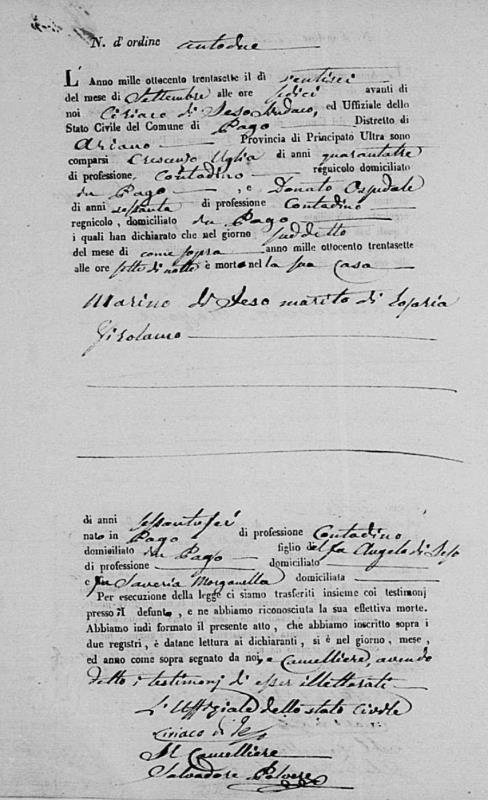 N. d'ordine centodue
L'Anno mille ottocento trentasette il dì ventisei
del mese di Settembre alle ore sedici avanti di
noi Ciriaco di Jeso Sindaco, ed Uffiziale dello
Stato Civile del Comune di Pago Distretto di
Ariano Provincia di Principato Ultra sono
comparsi Crescenzo Uglia di anni quarantatre
di professione Contadino regnicolo domiciliato
in Pago, e Donato Ospidale
di anni sessanta di professione Contadino
regnicolo, domiciliato in Pago
i quali han dichiarato che nel giorno suddetto
del mese di come sopra anno mille ottocento trentasette
alle ore sette di notte è morto nel la sua Casa
Marino di Jeso marito di
Girolamo
di anni sessantasei
nato in Pago di professione Contadino
domiciliato in Pago figlio del fu Angelo di Jeso
di professione domiciliato
e fu Saveria Morganella domiciliata
Per esecuzione della legge ci siamo trasferiti insieme coi testimonj
presso il defunto, e ne abbiamo riconosciuta la sua effettiva morte.
Abbiamo indi formato il presente atto, che abbiamo inscritto sopra i
due registri, è datane lettura ai dichiaranti, si è nel giorno, mese,
ed anno come sopra segnato da noi, e Cancelliere, avendo
detto i testimonj di esser illetterati
L'Uffiziale dello stato Civile
Ciriaco di Jeso
Il Cancelliere
Salvadore Polvere